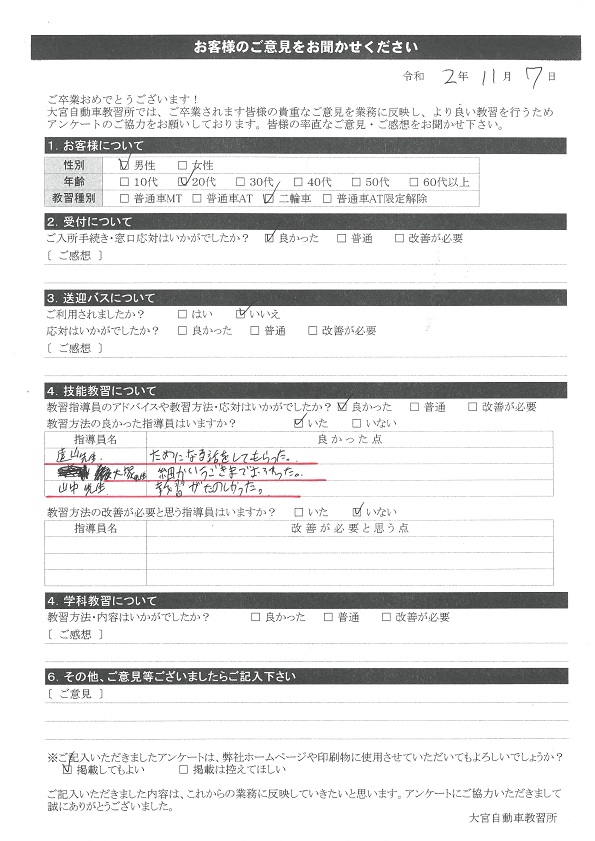 お客様のご意見をお聞かせください
令和 2年 11月 7日
ご卒業おめでとうございます！
大宮自動車教習所では、ご卒業されます皆様の貴重なご意見を業務に反映し、より良い教習を行うため
アンケートのご協力をお願いしております。皆様の率直なご意見・ご感想をお聞かせ下さい。
1. お客様について
性別 ☑男性 □女性
年齢 □10代 ☑20代 □30代 □40代 □50代 □60代以上
教習種別 □普通車MT □普通車AT ☑二輪車 □普通車AT限定解除
2. 受付について
ご入所手続き・窓口応対はいかがでしたか？ ☑良かった □普通 □改善が必要
〔 ご感想 〕
3. 送迎バスについて
ご利用されましたか？ □はい ☑いいえ
応対はいかがでしたか？ □良かった □普通 □改善が必要
〔 ご感想 〕
4. 技能教習について
教習指導員のアドバイスや教習方法・応対はいかがでしたか？ ☑良かった □普通 □改善が必要
教習方法の良かった指導員はいますか？ ☑いた □いない
指導員名 良かった点
遠山先生 ためになる話をしてもらった。
大塚先生 細かいうごきまで
山中先生 教習がたのしかった。
教習方法の改善が必要と思う指導員はいますか？ □いた ☑いない
指導員名 改善が必要と思う点
4. 学科教習について
教習方法・内容はいかがでしたか？ □良かった □普通 □改善が必要
〔 ご感想 〕
6. その他、ご意見等ございましたらご記入下さい
〔 ご意見 〕
※ご記入いただきましたアンケートは、弊社ホームページや印刷物に使用させていただいてもよろしいでしょうか？
☑掲載してもよい □掲載は控えてほしい
ご記入いただきました内容は、これからの業務に反映していきたいと思います。アンケートにご協力いただきまして
誠にありがとうございました。
大宮自動車教習所